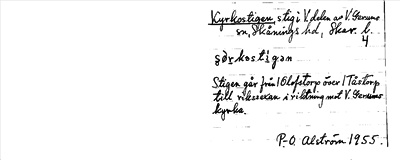 Kyrkostigen, stig i V. delen av V. Gerums
sn, Skånings hd, Skar. l.
4
Stigen går från 1 Olofstorp över 1 Tåstorp
till riksvägen i riktning mot V. Gerums
kyrka.
P.-O. Alström 1955.